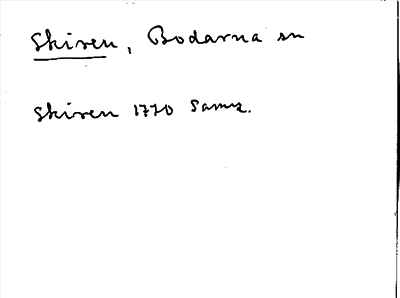 Skiren, Bodarna sn
Skiren 1770 Samz.